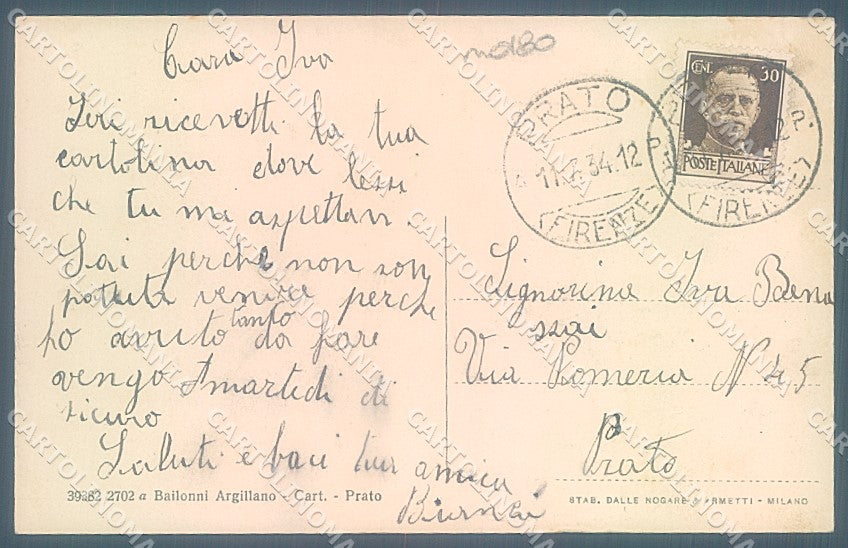 Cara Iva
Ieri ricevetti la tua
cartolina dove lessi
che tu ma aspettavi
Sai perche non son
potuta venire perche
ho avuto tanto da fare
vengo martedi di
sicuro
Saluti e baci tua amica
39282 2702 a Bailonni Argillano - Cart. - Prato
PRATO
34.12
(FIRENZE)
CENT. 30
POSTE ITALIANE
(FIRENZE)
Signorina Iva Bena
ssai
Via Pomeria N 45
Prato
STAB. DALLE NOGARE E ARMETTI - MILANO
CARTOLINOMANIA